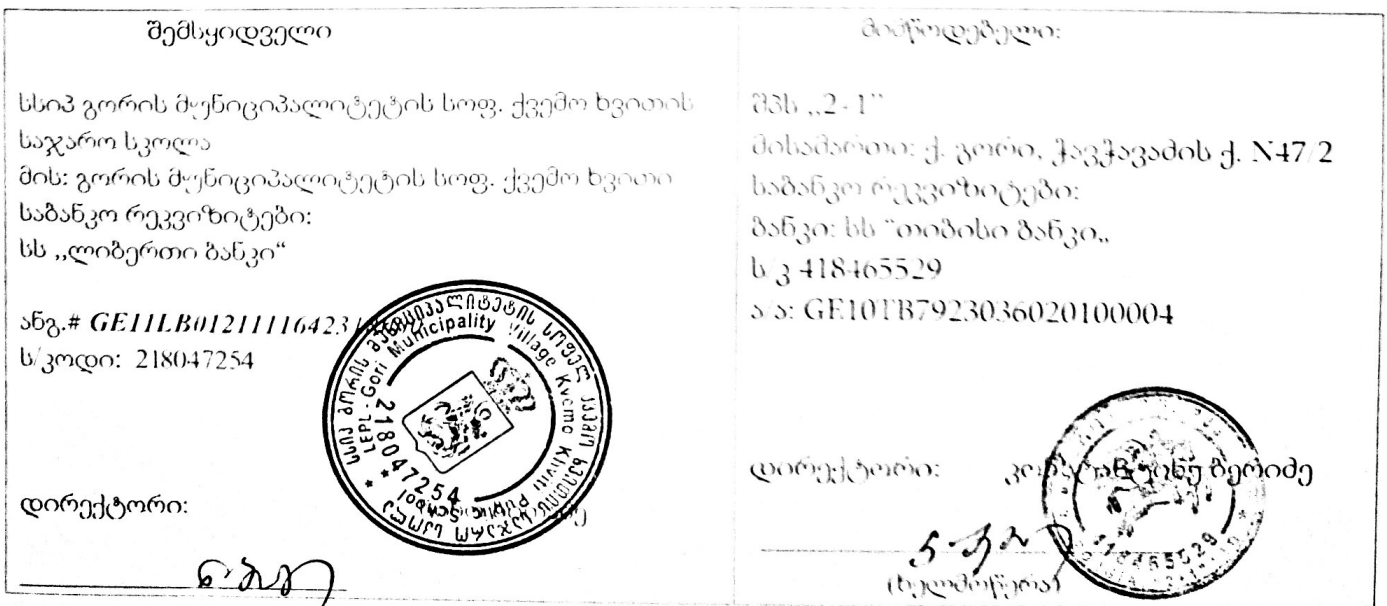 შემსყიდველი
სსიპ გორის მუნიციპალიტეტის სოფ. ქვემო ხვითის
საჯარო სკოლა
მის: გორის მუნიციპალიტეტის სოფ. ქვემო ხვითი
საბანკო რეკვიზიტები:
სს ,,ლიბერთი ბანკი“
ანგ.# GE11LB01211116423
ს/კოდი: 218047254
სსიპ გორის მუნიციპალიტეტის სოფელ ქვემო ხვითის საჯარო სკოლა
LEPL - Gori Municipality Village Kvemo Khviti Public School
* 218047254 *
დირექტორი:
მიმწოდებელი:
შპს ,,2-1”
მისამართი: ქ. გორი, ჭავჭავაძის ქ. N47/2
საბანკო რეკვიზიტები:
ბანკი: სს “თიბისი ბანკი,,
ს/კ 418465529
ა/ა: GE10TB7923036020100004
დირექტორი: კონსტანტინე ბერიძე
(ხელმოწერა)
418465529